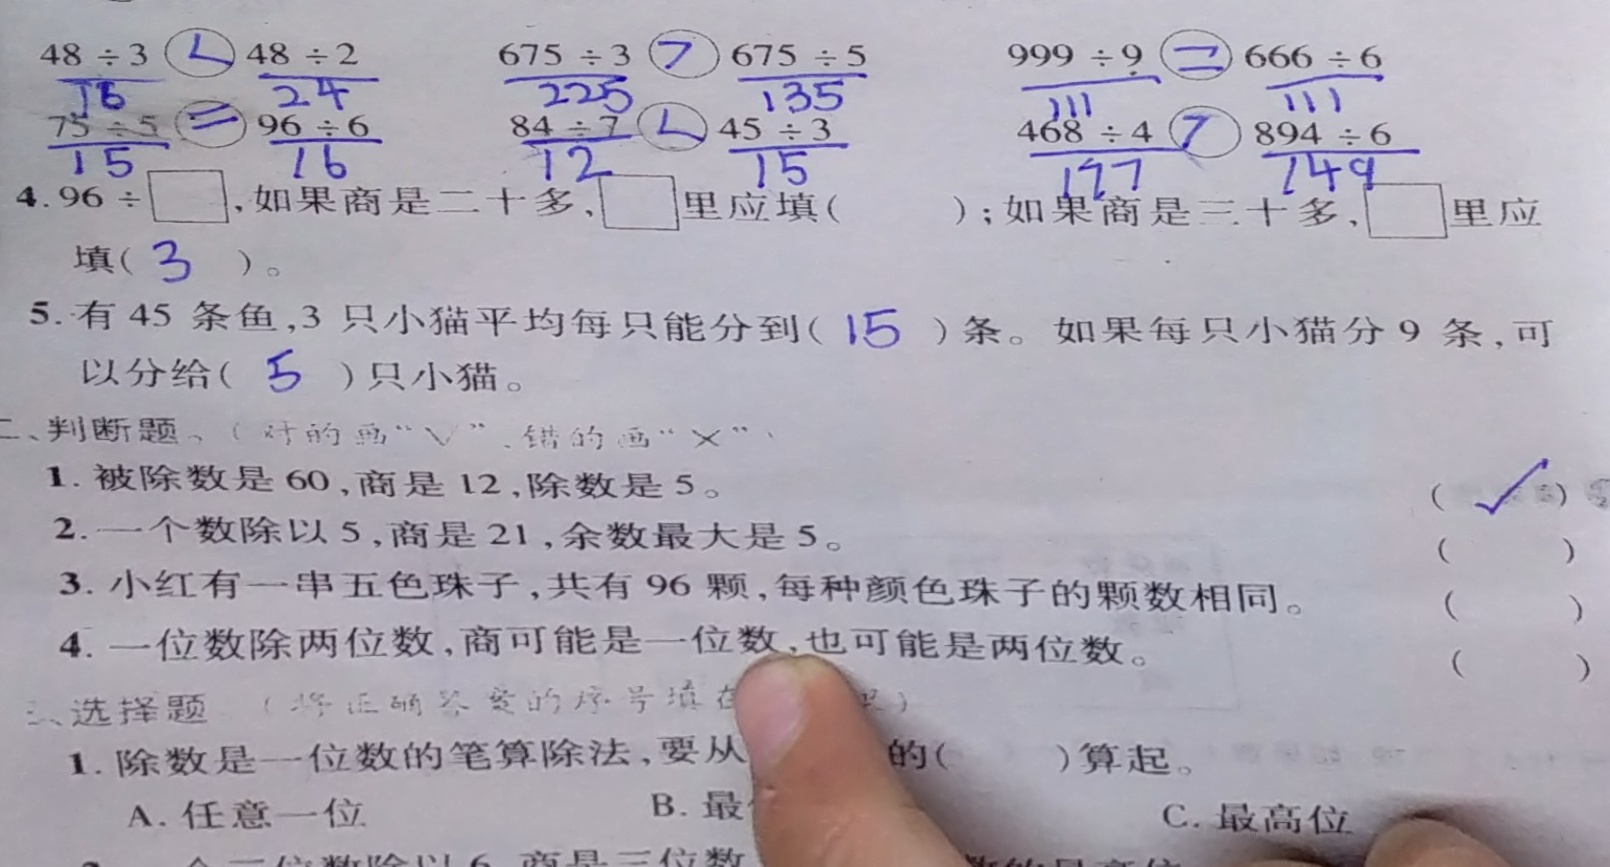 48÷3 < 48÷2 675÷3 > 675÷5 999÷9 = 666÷6
16 24 225 135 111 111
75÷5 = 96÷6 84÷7 < 45÷3 468÷4 > 894÷6
15 16 12 15 177 149
4. 96÷□,如果商是二十多,□里应填( );如果商是三十多,□里应
填( 3 )。
5. 有45条鱼,3只小猫平均每只能分到( 15 )条。如果每只小猫分9条,可
以分给( 5 )只小猫。
二、判断题。(对的画“√”、错的画“×”
1. 被除数是60,商是12,除数是5。 ( ✓ )
2. 一个数除以5,商是21,余数最大是5。 ( )
3. 小红有一串五色珠子,共有96颗,每种颜色珠子的颗数相同。 ( )
4. 一位数除两位数,商可能是一位数,也可能是两位数。 ( )
三、选择题 (将正确答案的序号填在 )
1. 除数是一位数的笔算除法,要从 的( )算起。
A. 任意一位 B. 最 C. 最高位